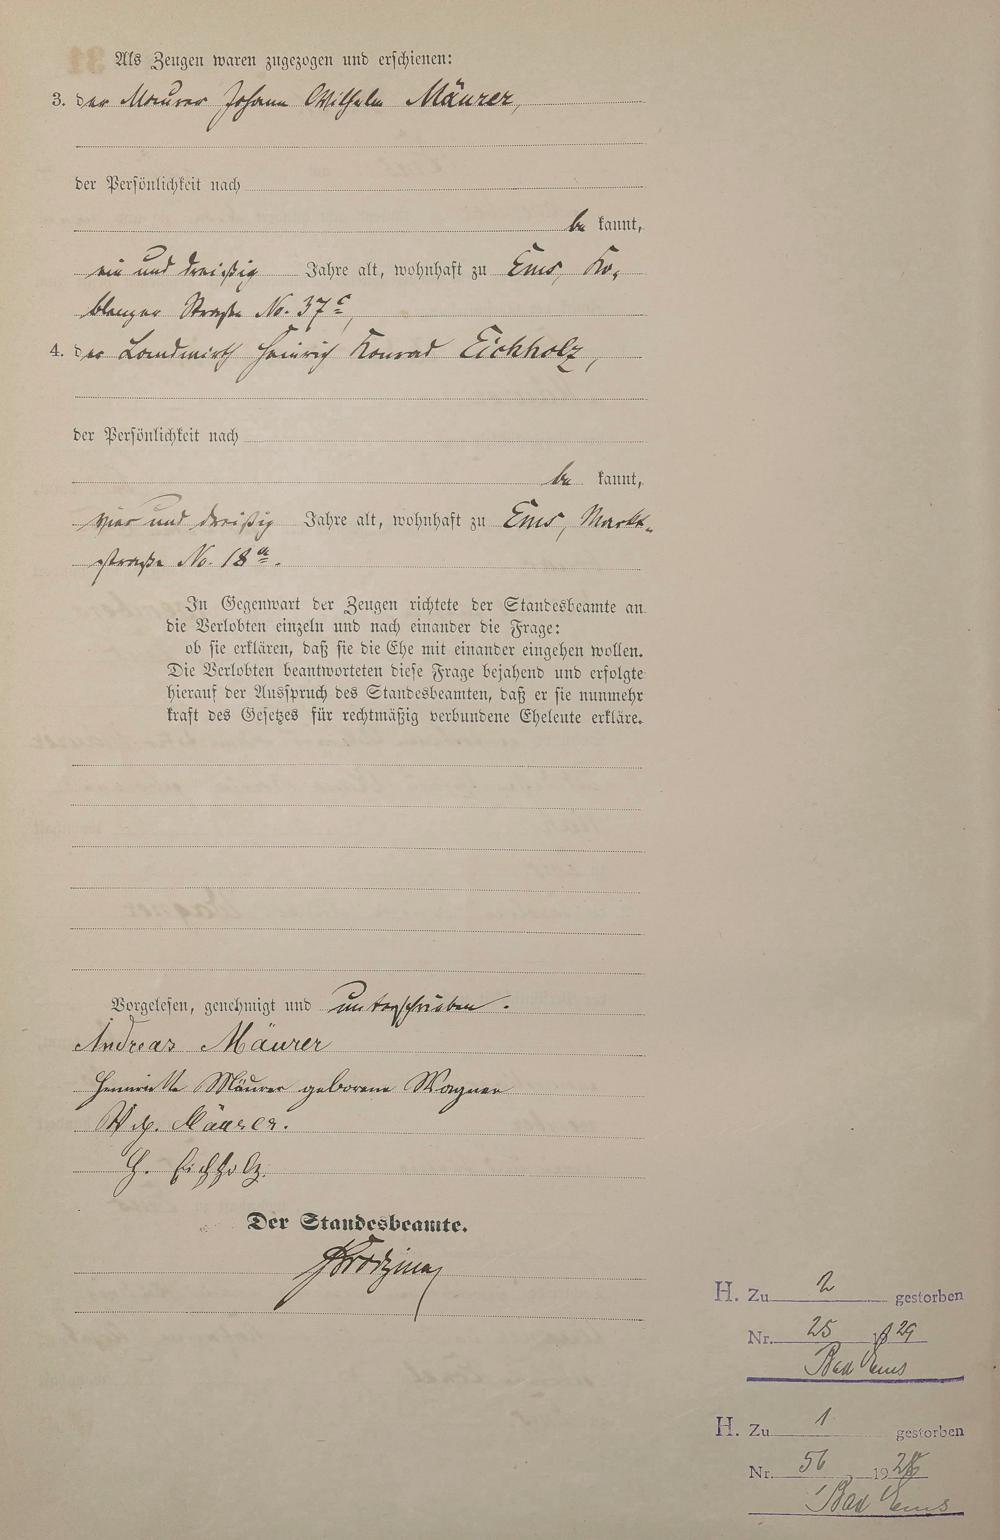 Als Zeugen waren zugezogen und erschienen:
3. der Maurer Johann Wilhelm Mäurer,
der Persönlichkeit nach
be kannt,
ein und dreißig Jahre alt, wohnhaft zu Ems, Ko-
blenzer Straße No. 37c,
4. der Landwirth Heinrich Konrad Eickholz,
der Persönlichkeit nach
be kannt,
vier und dreißig Jahre alt, wohnhaft zu Ems, Markt-
straße No. 18a.
In Gegenwart der Zeugen richtete der Standesbeamte an
die Verlobten einzeln und nach einander die Frage:
ob sie erklären, daß sie die Ehe mit einander eingehen wollen.
Die Verlobten beantworteten diese Frage bejahend und erfolgte
hierauf der Ausspruch des Standesbeamten, daß er sie nunmehr
kraft des Gesetzes für rechtmäßig verbundene Eheleute erkläre.
Vorgelesen, genehmigt und unterschrieben.
Andreas Mäurer
Henriette Mäurer geborene Wagner
Wh. Mäurer.
H. Eichholz.
Der Standesbeamte.
H. Zu 2 gestorben
Nr. 25 1929
Bad Ems
H. Zu 1 gestorben
Nr. 56 19
Bad Ems